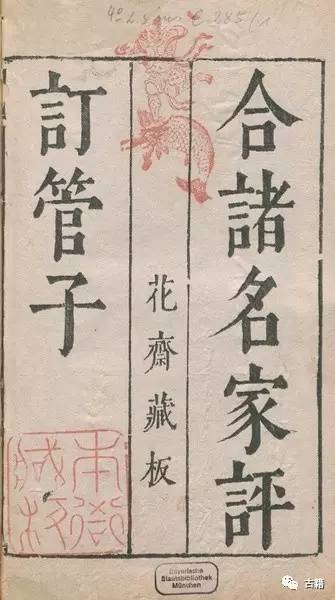 4° L. sin. C 285/1
合諸名家評
訂管子
花齋藏板
本衙藏板
Bayerische
Staatsbibliothek
München
古籍